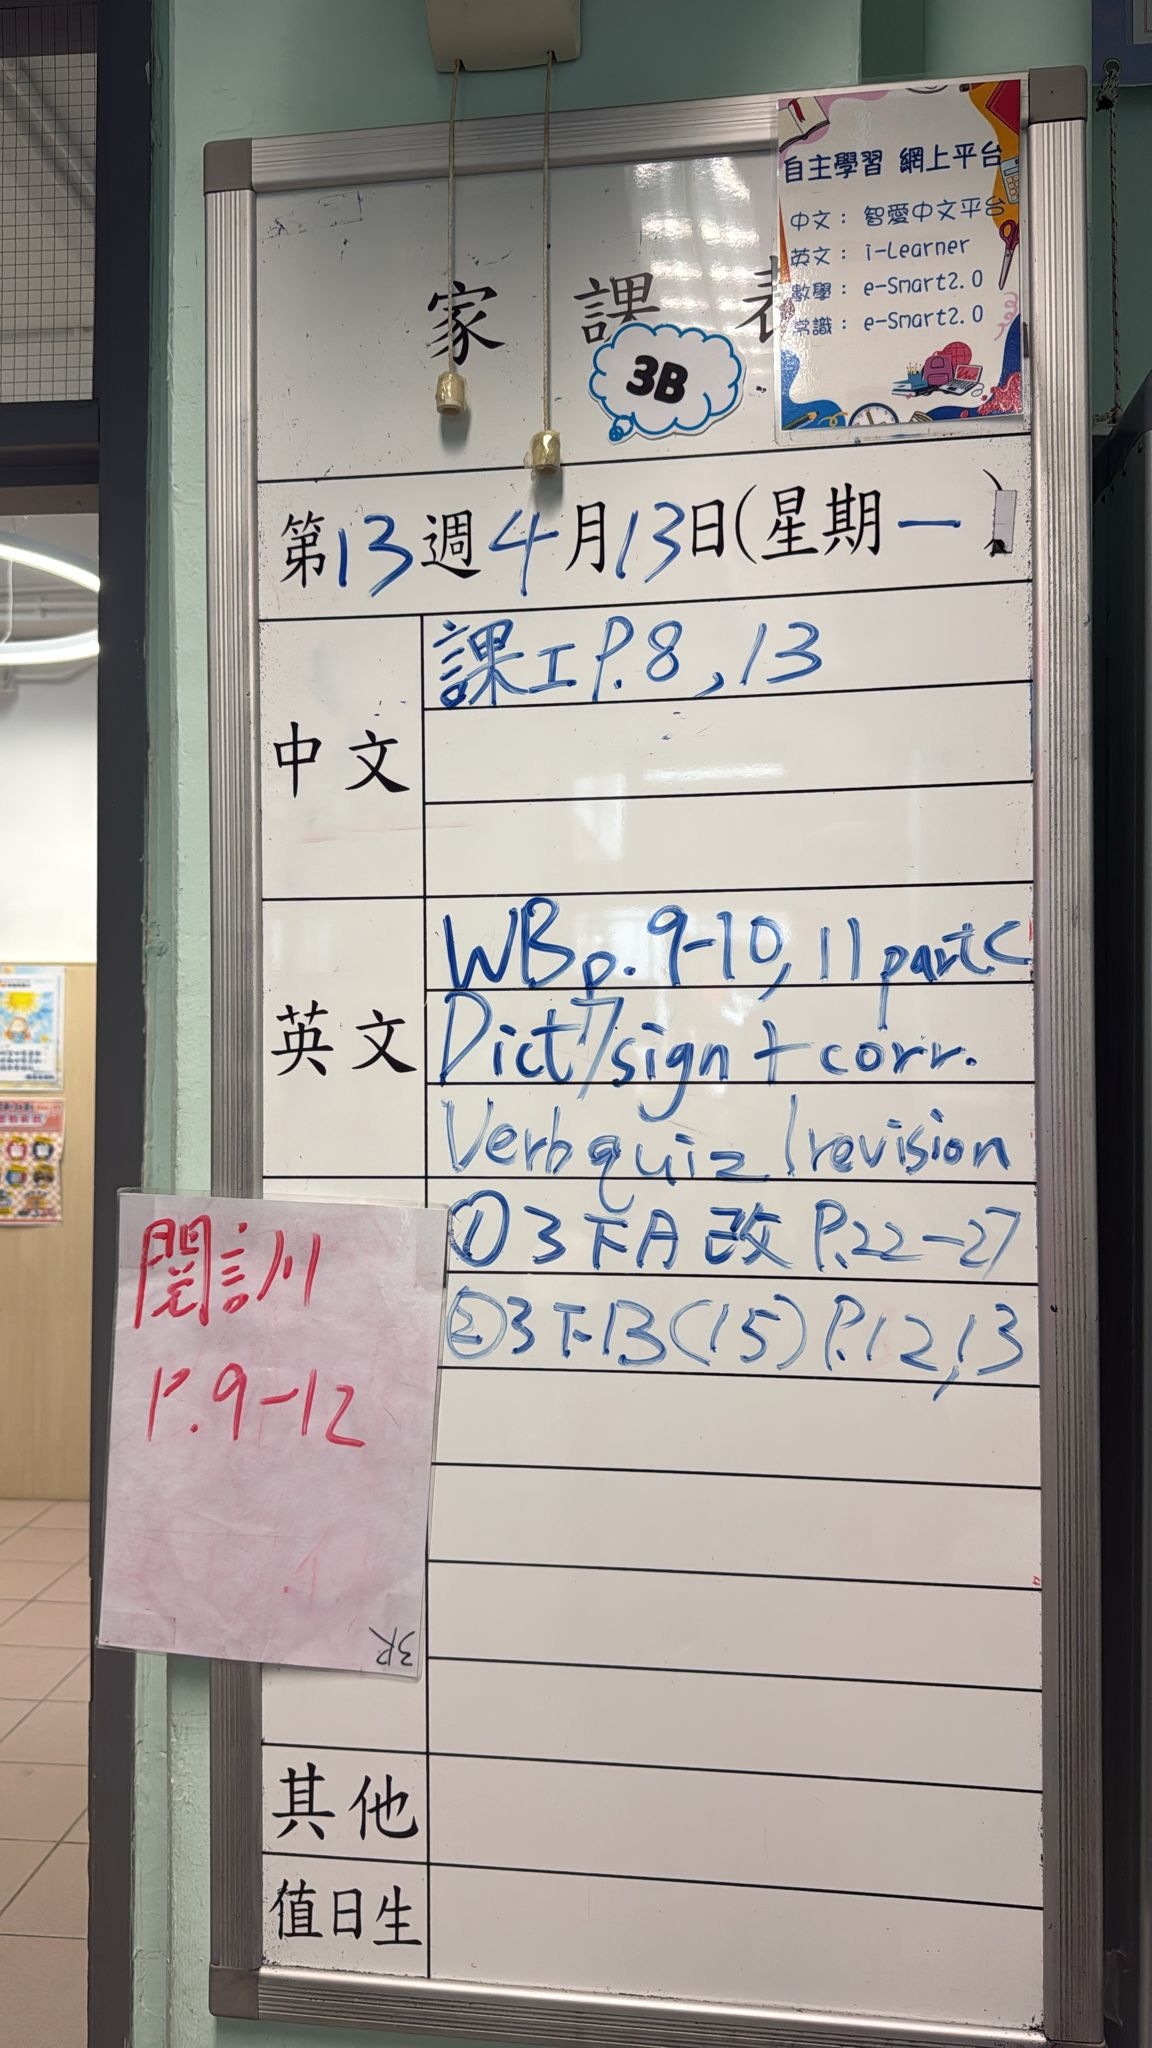 自主學習 網上平台
中文： 智愛中文平台
英文： i-Learner
數學： e-Smart2.0
常識： e-Smart2.0
家 課 表
3B
第13週4月13日(星期一)
中文
課工P.8,13
英文
WBp.9-10,11partC
Dict7/sign+corr.
Verb quiz 1 revision
①3下A改P.22-27
②3下B(15)P.12,13
閱訓
P.9-12
3R
其他
值日生